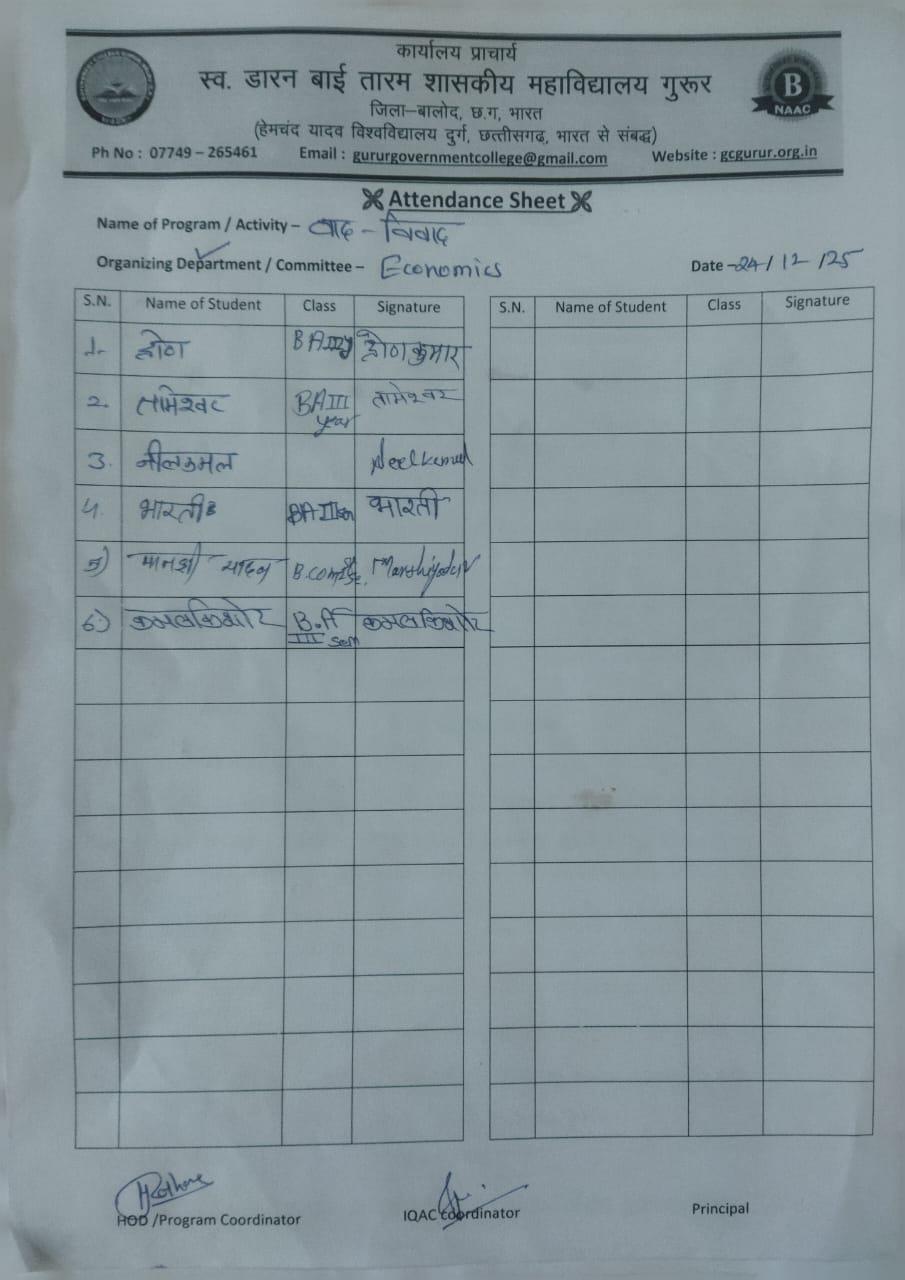 कार्यालय प्राचार्य
स्व. डारन बाई तारम शासकीय महाविद्यालय गुरूर
जिला–बालोद, छ.ग, भारत
(हेमचंद यादव विश्वविद्यालय दुर्ग, छत्तीसगढ़, भारत से संबद्ध)
B
NAAC
Ph No : 07749 – 265461 Email : gururgovernmentcollege@gmail.com Website : gcgurur.org.in
Attendance Sheet
Name of Program / Activity – वाद - विवाद
Organizing Department / Committee – Economics Date – 24/12/25
S.N. Name of Student Class Signature S.N. Name of Student Class Signature
1. BA
2. तामेश्वर BA III year तामेश्वर
3. नीलकमल Neelkamal
4. भारती BA III भारती
5) यादव B.com
6) कमलकिशोर B.A III sem कमलकिशोर
HOD /Program Coordinator IQAC Coordinator Principal